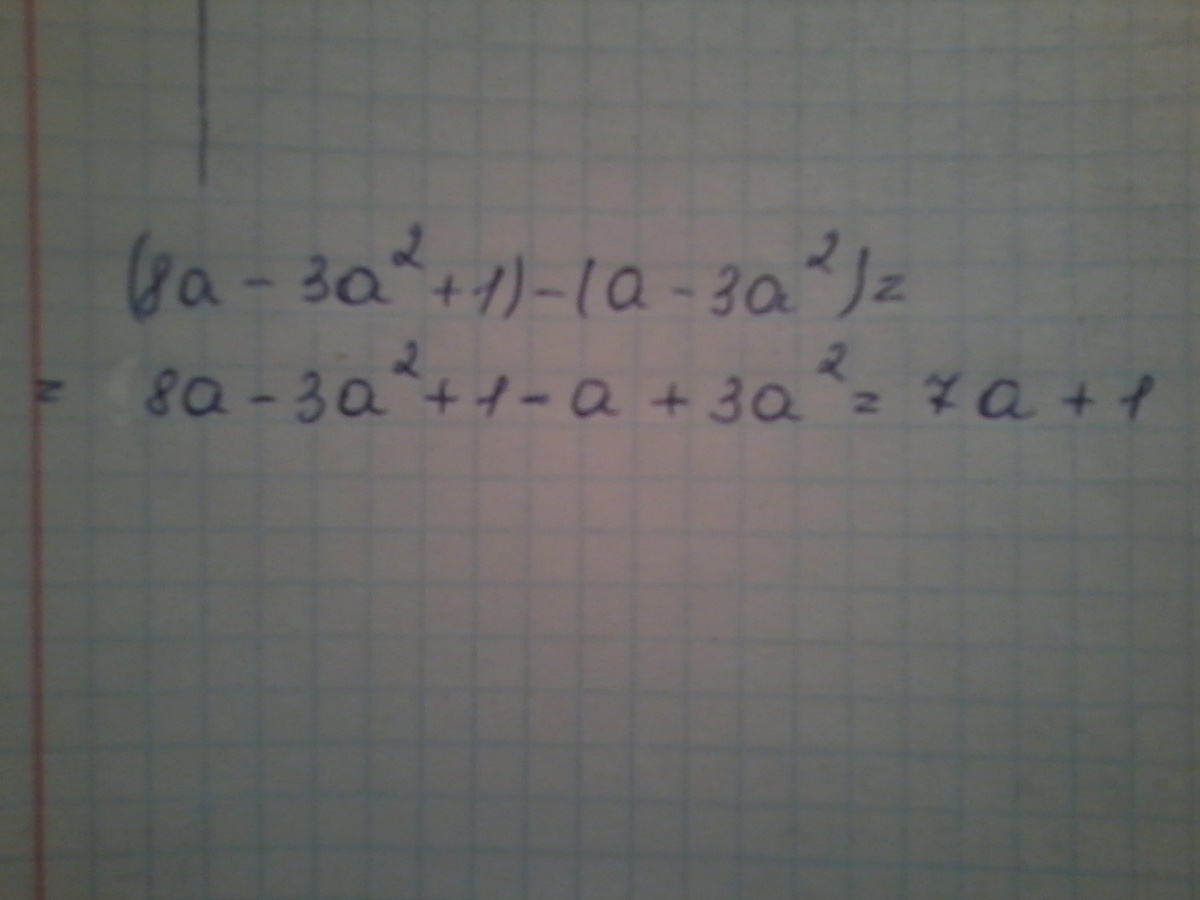 (8a - 3a² + 1) - (a - 3a²) =
= 8a - 3a² + 1 - a + 3a² = 7a + 1